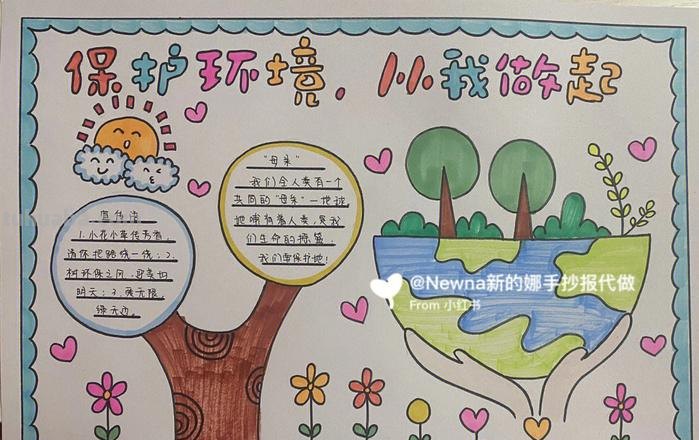 保护环境，从我做起
"母亲"
我们全人类有一个
共同的"母亲"—地球，
她哺育着人类，是我
们生命的摇篮，
我们要保护她！
宣传语
1.小花小草传芳香，
请你把路绕一绕；2.
树环保之风，
明天；3.爱无限，
绿无边。
@Newna新的娜手抄报代做
From 小红书